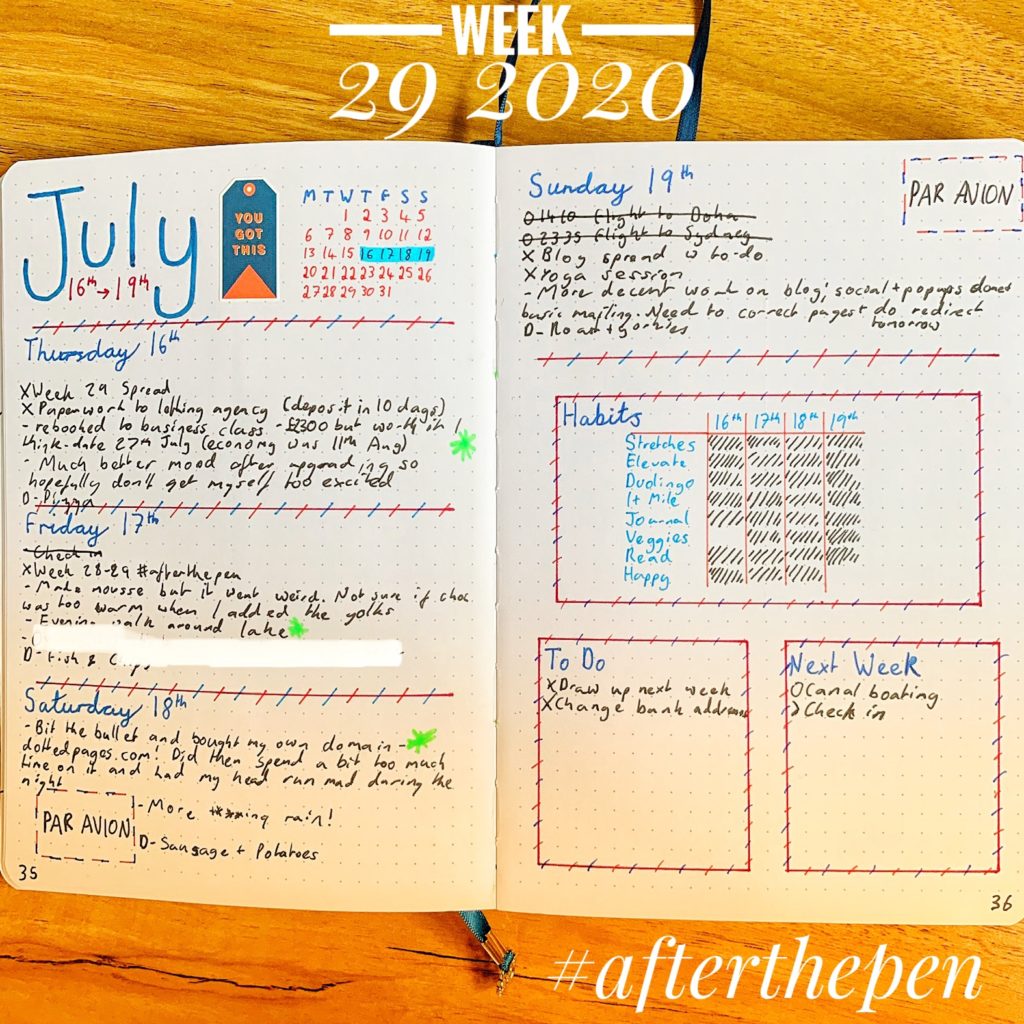 WEEK
29 2020
July
16th → 19th
YOU
GOT
THIS
M T W T F S S
1 2 3 4 5
6 7 8 9 10 11 12
13 14 15 16 17 18 19
20 21 22 23 24 25 26
27 28 29 30 31
Thursday 16th
X Week 29 Spread
X Paperwork to letting agency (deposit in 10 days)
- rebooked to business class - £2300 but worth it I
think - date 27th July (economy was 11th Aug)
- Much better mood after upgrading so
hopefully don't get myself too excited
D - Pizza
Friday 17th
Check in
X Week 28-29 #afterthepen
- Made mousse but it went weird. Not sure if choc
was too warm when I added the yolks
- Evening walk around lake
D - Fish & Chips
Saturday 18th
- Bit the bullet and bought my own domain -
dottedpages.com! Did then spend a bit too much
time on it and had my head run mad during the
night
PAR AVION
- More ****ing rain!
D - Sausage + Potatoes
35
Sunday 19th
PAR AVION
O 1410 Flight to Doha
O 2335 Flight to Sydney
X Blog spread w to-do
X Yoga session
- More decent work on blog; social + popups done +
basic mailing. Need to correct pages + do redirect
tomorrow
D - Roast + yorkies
Habits
16th 17th 18th 19th
Stretches
Elevate
Duolingo
1+ Mile
Journal
Veggies
Read
Happy
To Do
X Draw up next week
X Change bank address
Next Week
O Canal boating
> Check in
36
#afterthepen